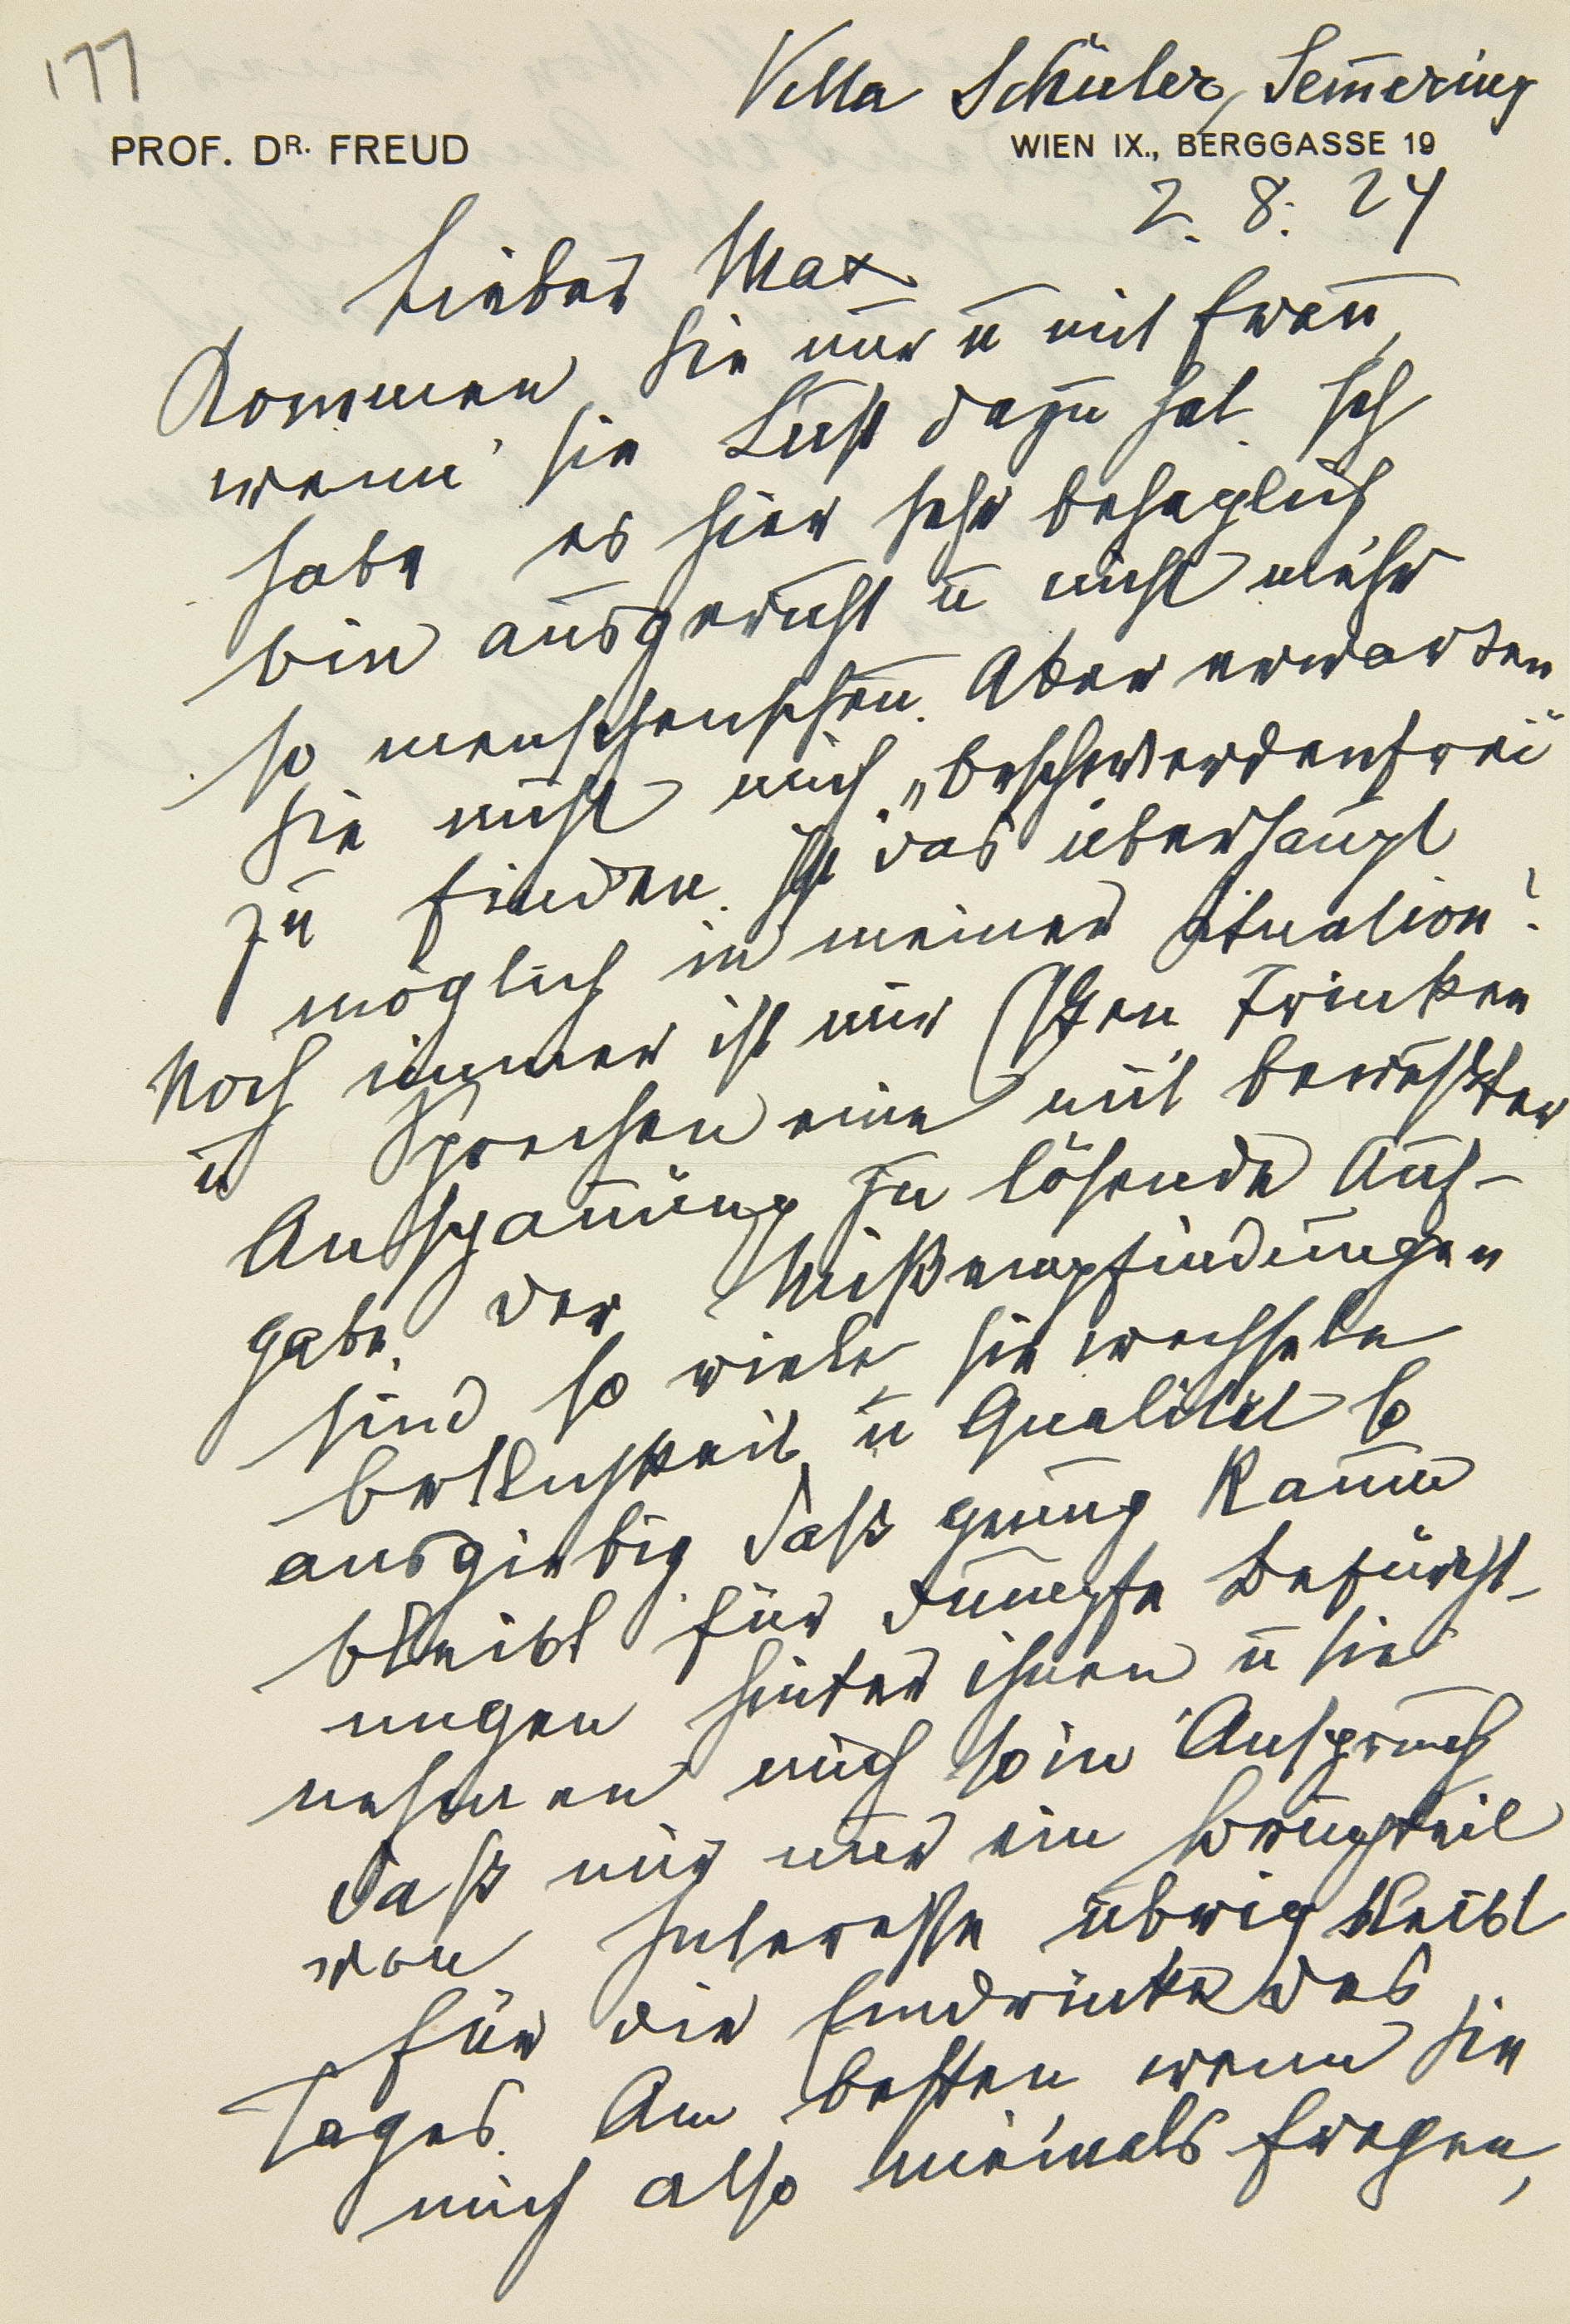 177
Villa Schüler, Sem̄ering
PROF. DR. FREUD
WIEN IX., BERGGASSE 19
2. 8. 24
Lieber Max
Kommen Sie nur u mit Frau,
wenn sie Lust dazu hat. Ich
habe es hier sehr behaglich
bin ausgeruht u nicht mehr
so menschenscheu. Aber erwarten
Sie nicht mich „beschwerdenfrei“
zu finden. Ist das überhaupt
möglich in meiner Situation?
Noch immer ist mir Essen Trinken
u Sprechen eine mit bewußter
Anspan̄ung zu lösende Auf-
gabe. Der Mißempfindungen
sind so viele, sie wechseln
Örtlichkeit u Qualität so
ausgiebig daß genug Raum
bleibt für dumpfe Befürcht-
ungen hinter ihnen u sie
nehmen mich so in Anspruch
daß mir nur ein Bruchteil
von Interesse übrig bleibt
für die Eindrücke des
Tages. Am besten wenn Sie
mich also niemals fragen,